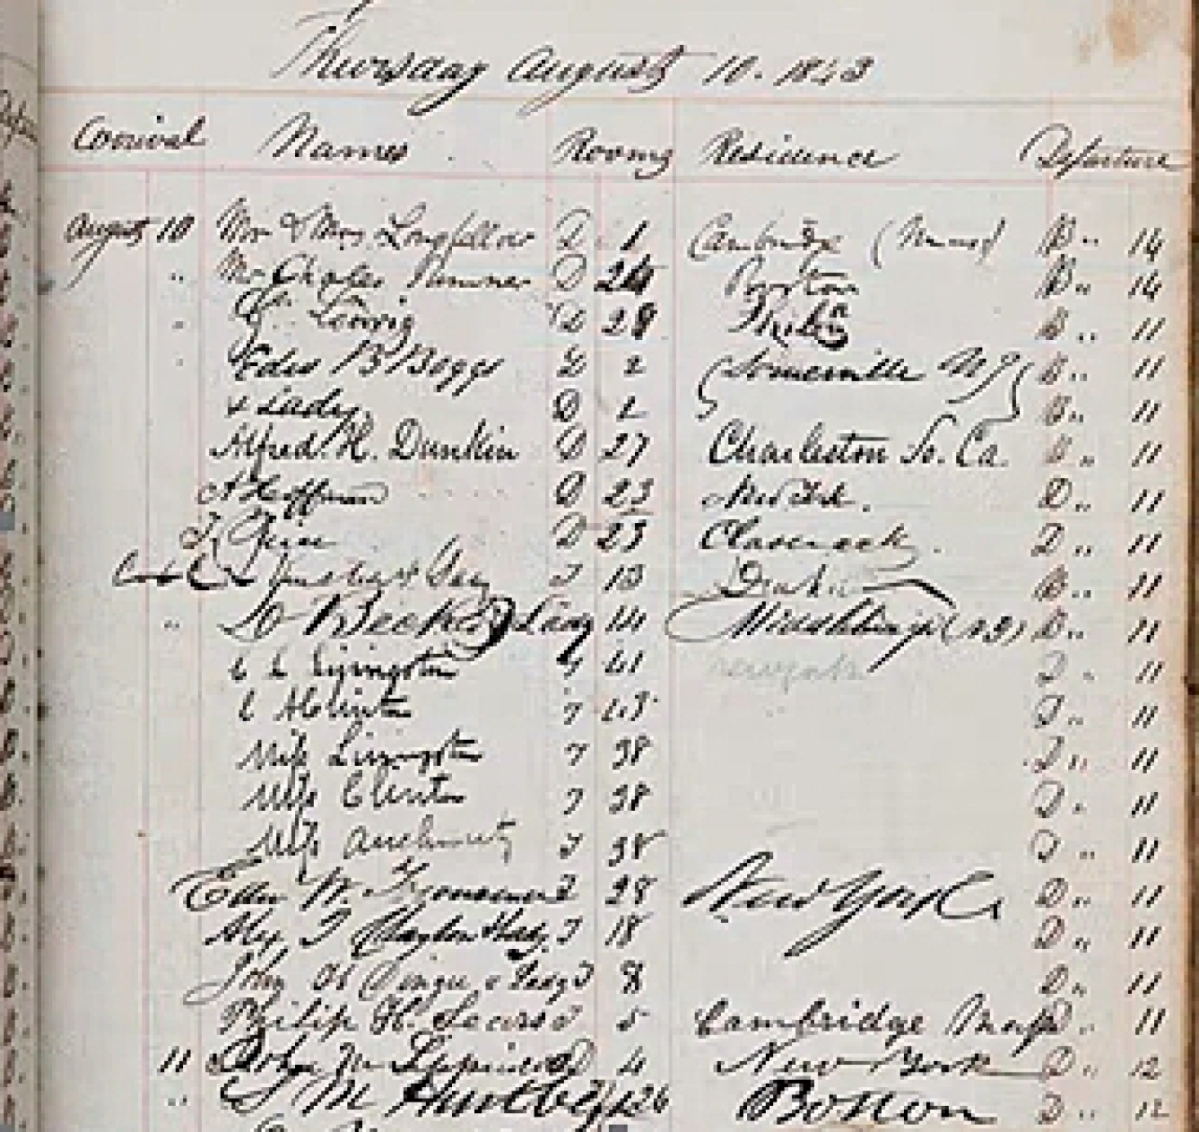 Thursday August 10. 1843
Arrival Names Rooms Residence Departure
August 10 Mr & Mrs. Longfellow D 1 Cambridge (Mass) B „ 14
„ Mr Charles Sumner D 24 Boston B „ 14
„ D 28 B „ 11
Edw B Boggs D 2 (Somerville N J) B „ 11
& Lady. D 2 B „ 11
Alfred. H. Dunkin D 27 Charleston So. Ca. B „ 11
A Hoffman D 23 New York. D „ 11
D 23 Claverack. D „ 11
& Lady 13 B „ 11
„ D Becker & Lady 14 D „ 11
C L Livingston 41 New York D „ 11
C A Clinton 43 D „ 11
Miss Livingston 38 D „ 11
Miss Clinton 38 D „ 11
Miss Auchmuty 38 D „ 11
Edw W. 28 New York D „ 11
Alex. & Lady 18 D „ 11
John & Lady 8 D „ 11
Philip H. Sears 5 Cambridge Mass D „ 11
11 John D 4 New York D „ 12
„ S M 126 Boston D „ 12